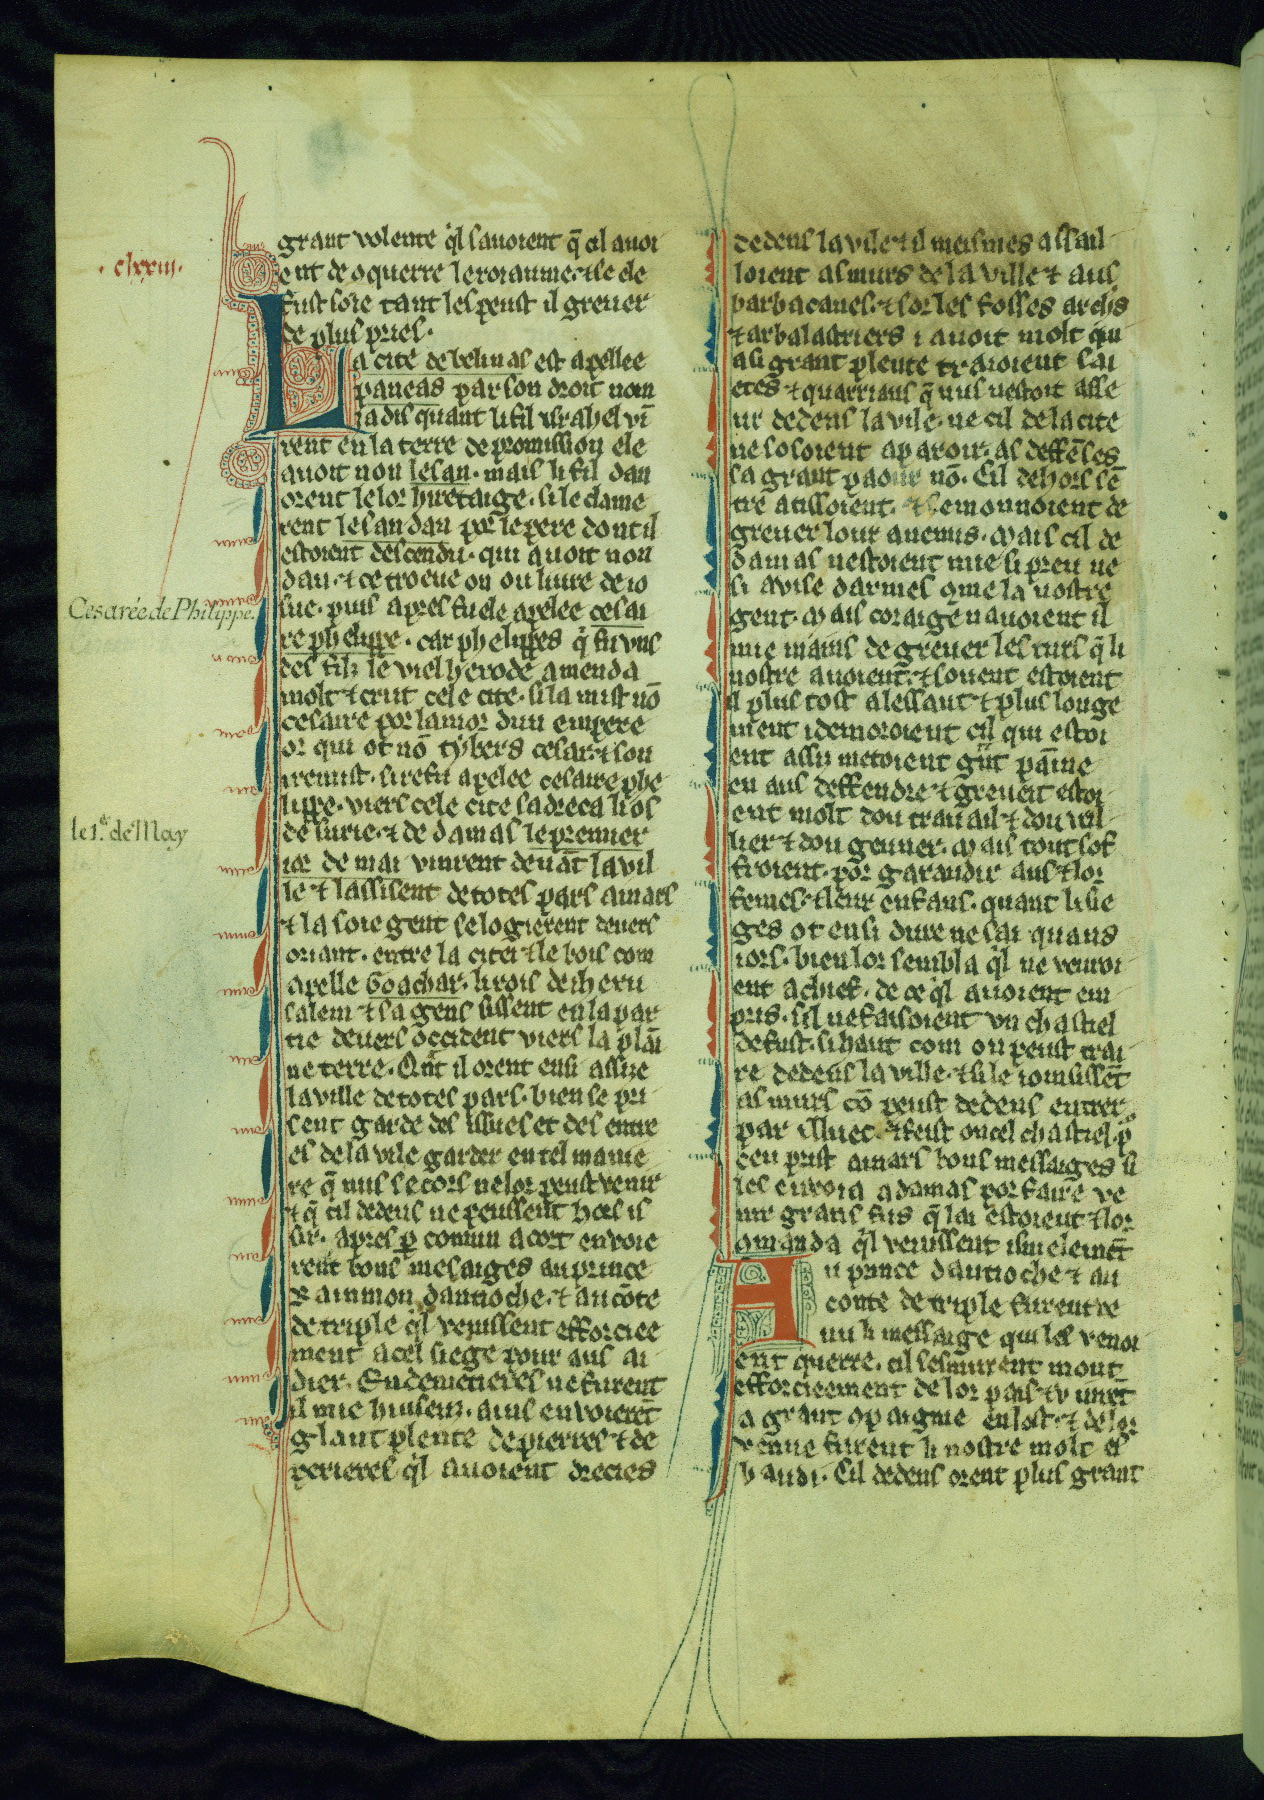 grant volente ql̃ sauoient q̃ cil auoi
ent de ɔquerre le roiaume ⁊ se ele
fust soie tant les peust il greuer
de plus pries.
. clxxiii.
La cite de belinas est apellee
paneas par son droit nom
iadis quant li fil israhel vī
rent en la terre de promission ele
auoit non lesan. mais li fil dan
orent le lor hiretaige. si le clame
rent lesandan por le pere dont il
estoient descendu. qui auoit non
dan. ⁊ ce troeue on ou liure de io
sue. puis apres fu ele apelee cesai
Cesarée de Philippe.
re phelippe. car phelippes q̃ fu vns
des filz le viel herode amenda
molt ⁊ crut cele cite. si la mist nō
cesaire por lamor dun empere
or qui ot nō tybers cesar. ⁊ son
i remist. si refu apelee cesaire phe
lippe. viers cele cite sadreca li os
de surie ⁊ de damas le premier
le 1.er de May
ior de mai vinrent deuāt la vil
le ⁊ lassisent de totes pars ainars
⁊ la soie gent se logierent deuers
oriant. entre la citei ⁊ le bois com
apelle Goachar. li rois de iheru
salem ⁊ sa gens sissent en la par
tie deuers occident viers la plai
ne terre. Qñt il orent ensi assize
la ville de totes pars. bien se pri
sent garde des issues et des entre
es de la vile garder en tel manie
re q̃ nus secors ne lor peust venir
⁊ q̃ cil dedens ne peussent hors is
sir. apres p̱ comun acort enuoie
rent bons mesaiges au prince
Raimmon dantioche. ⁊ au cōte
de triple ql̃ venissent efforciee
ment a cel siege pour aus ai
dier. Endemetieres ne furent
il mie huiseuz. ains enuoierēt
grant plente de pierres ⁊ de
perieres ql̃ auoient drecies
dedens la vile ⁊ il meismes assail
loient as murs de la ville ⁊ aus
barbacanes. ⁊ sor les fosses archis
⁊ arbalastriers i auoit molt qui
a si grant plente traioient sai
etes ⁊ quarriaus q̃ nus nestoit asse
ur dedens la vile. ne cil de la cite
ne sosoient aparoir. as deffēses
sa grant paour nō. Cil dehors sē
tre atissoient. ⁊ semonnoient de
greuer lour anemis. Mais cil de
damas nestoient mie si preu ne
si auise darmes ɔme la nostre
gent. Mais coraige n auoient il
mie mains de greuer les turs q̃ li
nostre auoient. ⁊ souent estoient
il plus tost a lessaut ⁊ plus longe
ment i demoroient cil qui estoi
ent assis metoient grñt paīne
en aus deffendre ⁊ greuei estoi
ent molt dou trauail ⁊ dou vil
lier ⁊ dou geuner. Mais tout sof
froient. por garandir aus ⁊ lor
femes. ⁊ leur enfans. quant li sie
ges ot ensi dure ne sai quans
iors. bien lor sembla ql̃ ne venroi
ent a chief. de ce ql̃ auoient em
pris. sil ne faisoient vn chastiel
de fust. si haut com on peust trai
re dedens la ville. ⁊ si le ioinsissēt
as murs cō peust dedens entrer
par illuec. ⁊ feist on cel chastiel. p̱
ceu prist ainars bons messaiges si
les enuoia a damas por faire ve
nir grans fus q̃ lai estoient ⁊ lor
ɔmanda ql̃ venissent isnelemēt
Au prince dantioche ⁊ au
conte de triple furent ve
nu li messaige qui les venoi
ent querre. cil sesmurent mout
efforcieement de lor pais ⁊ vinrēt
a grant ɔpaignie en lost. ⁊ de lor
venue furent li nostre molt es
baudi. Cil dedens orent plus grant